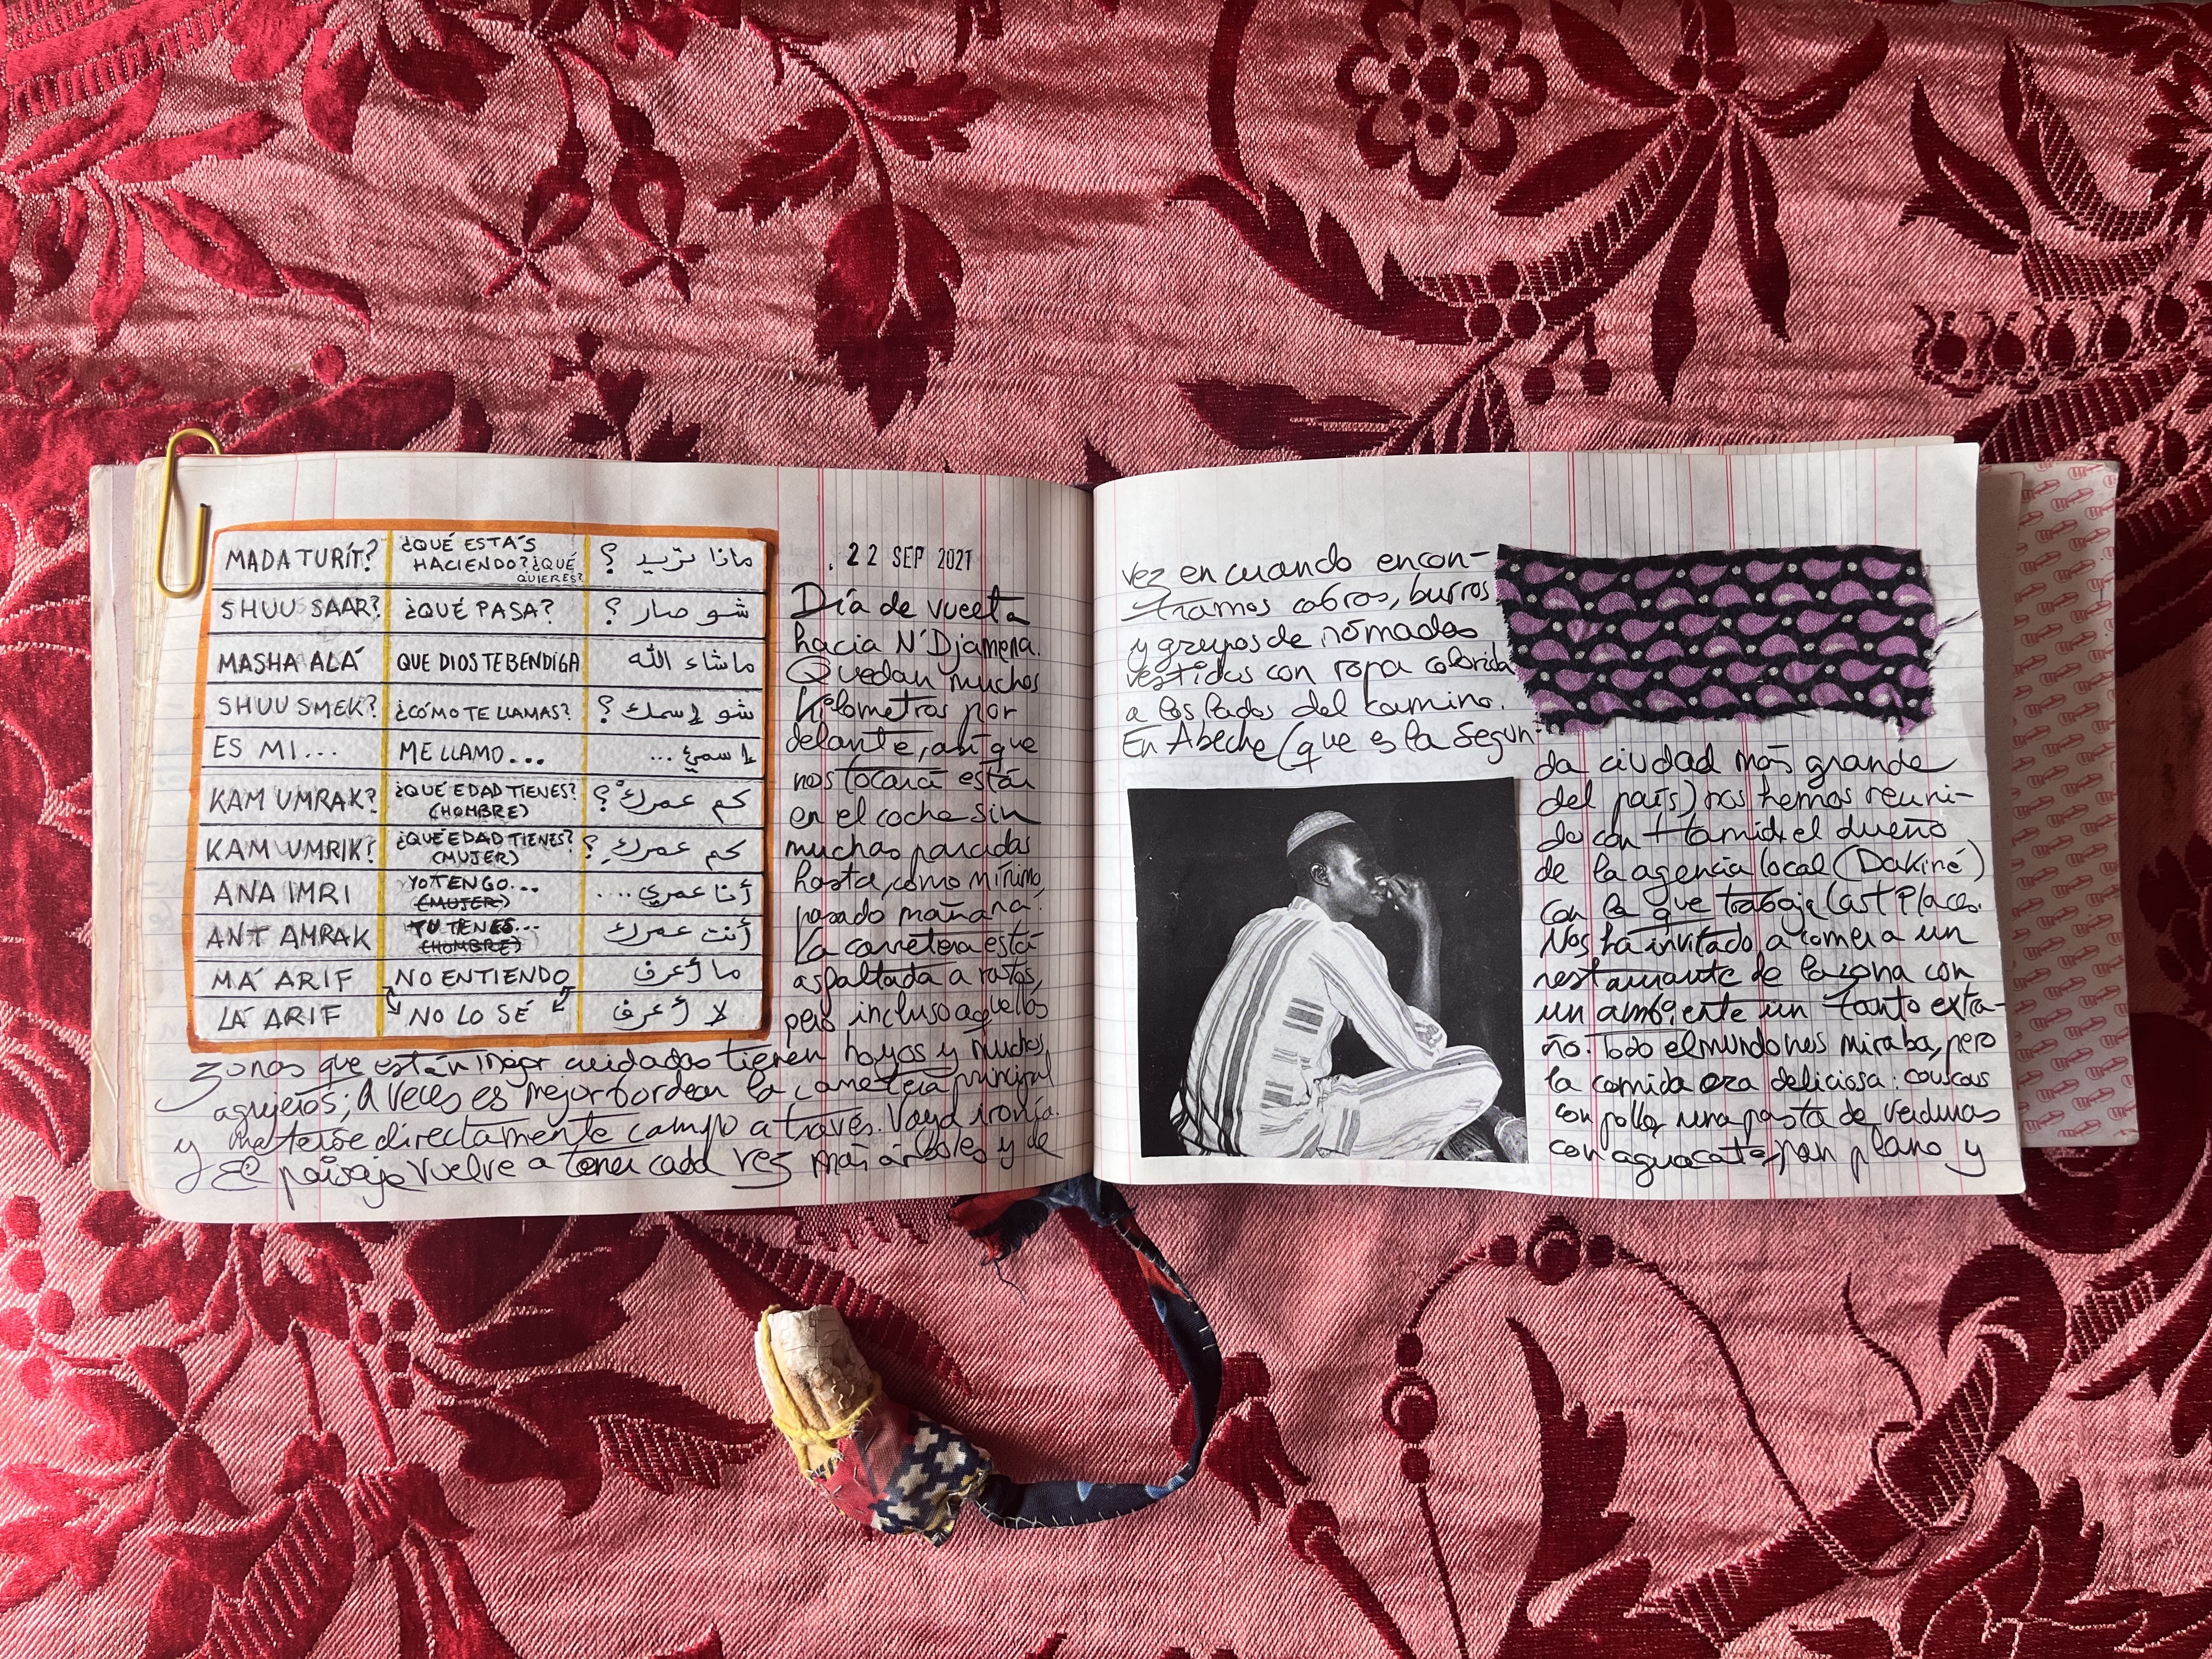 MADA TURÍT? ¿QUÉ ESTÁS HACIENDO? ¿QUÉ QUIERES? ماذا تريد ؟
SHUU SAAR? ¿QUÉ PASA? شو صار ؟
MASHA ALÁ QUE DIOS TE BENDIGA ماشاء الله
SHUU SMEK? ¿CÓMO TE LLAMAS? شو إسمك ؟
ES MI... ME LLAMO... إسمي ...
KAM UMRAK? ¿QUÉ EDAD TIENES? (HOMBRE) كم عمركْ ؟
KAM UMRIK? ¿QUÉ EDAD TIENES? (MUJER) كم عمركِ ؟
ANA IMRI YO TENGO... (MUJER) أنا عمري ....
ANT AMRAK TU TENES... (HOMBRE) أنت عمرك
MA' ARIF NO ENTIENDO ما أعرف
LA' ARIF NO LO SÉ لا أعرف
. 22 SEP 2021
Día de vuelta
hacia N'Djamena.
Quedan muchos
kilometros por
delante, así que
nos tocará estar
en el coche sin
muchas paradas
hasta, como mínimo,
pasado mañana.
La carretera está
asfaltada a ratos,
pero incluso aquellas
zonas que están mejor cuidadas tienen hoyos y muchos
agujeros; A veces es mejor bordear la carretera principal
y meterse directamente campo a través. Vaya ironía.
El paisaje vuelve a tener cada vez más árboles y de
vez en cuando encon-
tramos cabras, burros
y grupos de nómadas
vestidos con ropa colorida
a los lados del camino.
En Abeche (que es la segun-
da ciudad más grande
del país) nos hemos reuni-
do con Hamid, el dueño
de la agencia local (Dakiné)
con la que trabaja Last Places.
Nos ha invitado a comer a un
restaurante de la zona con
un ambiente un tanto extra-
ño. Todo el mundo nos miraba, pero
la comida era deliciosa: couscous
con pollo, una pasta de verduras
con aguacate, pan plano y